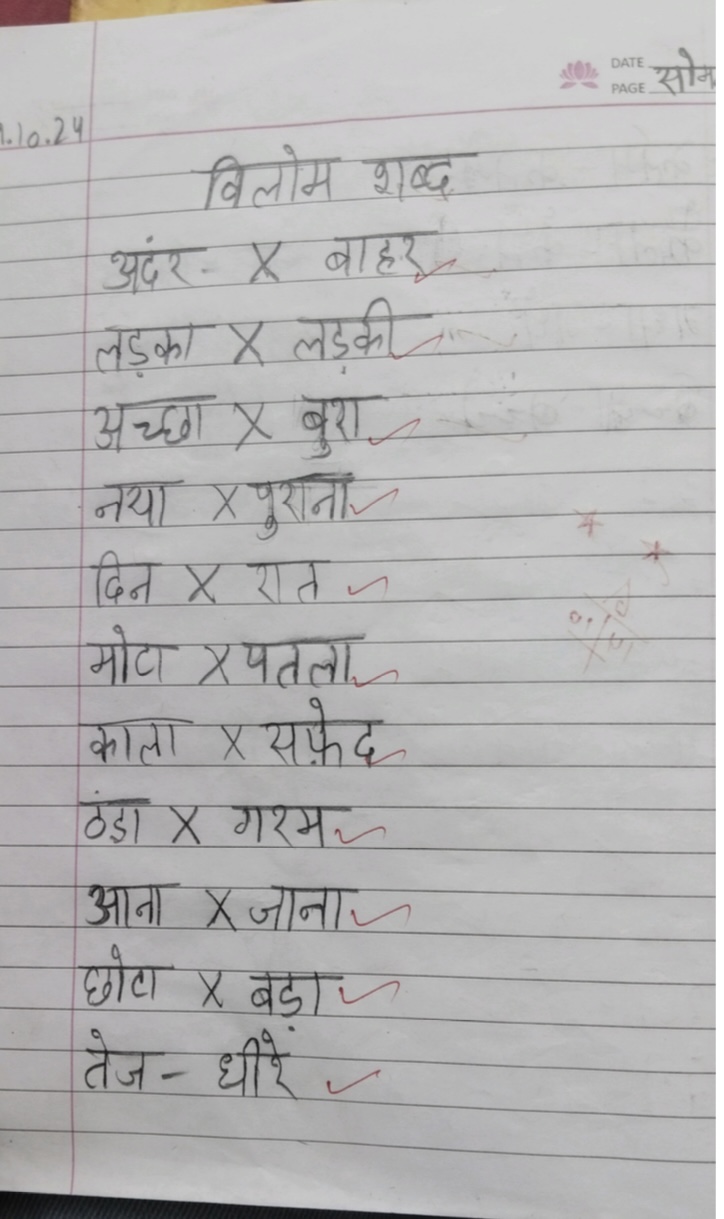 DATE
PAGE सोम
.10.24
विलोम शब्द
अदंर - X बाहर
लड़का X लड़की
अच्छा X बुरा
नया X पुराना
दिन X रात
मोटा X पतला
काला X सफ़ेद
ठंडा X गरम
आना X जाना
छोटा X बड़ा
तेज - धीरे